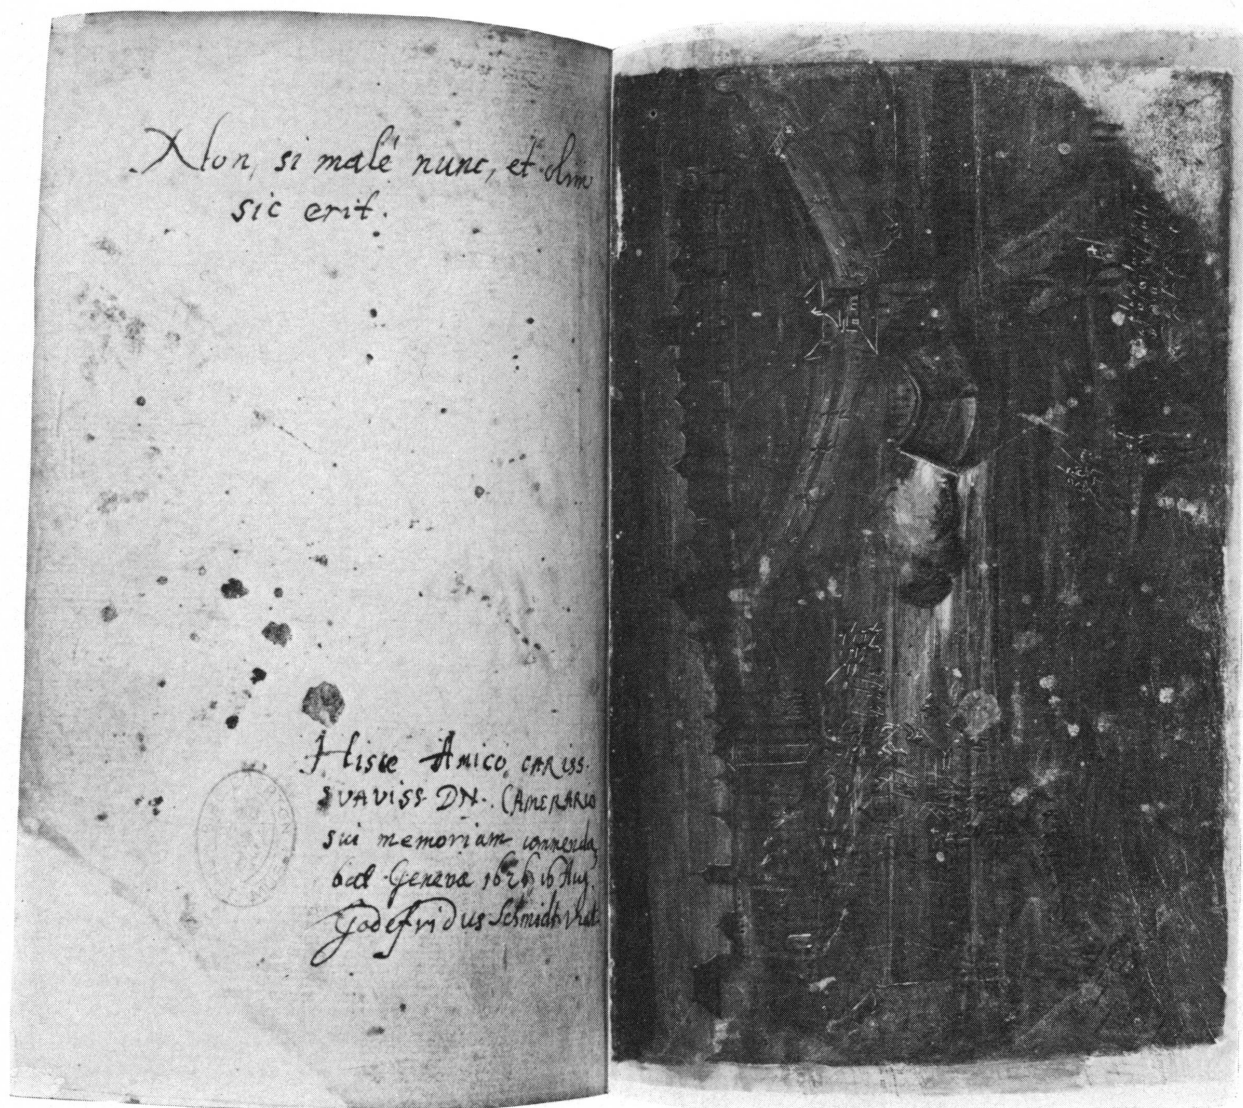 Non, si malè nunc, et olim
sic erit.
Hisce Amico cariss.
SVAVISS. DN. CAMERARIO
sui memoriam commenda
bat Genevæ 1626 16 Aug.
Godefridus Schmidt Vrat.